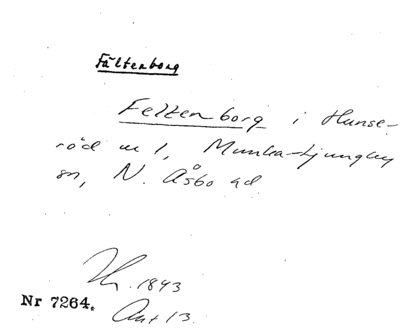 Fältenborg
Feltenborg i Hunse-
röd nr 1, Munka-Ljungby
sn, N. Åsbo hd
1843
Nr 7264. Akt 13